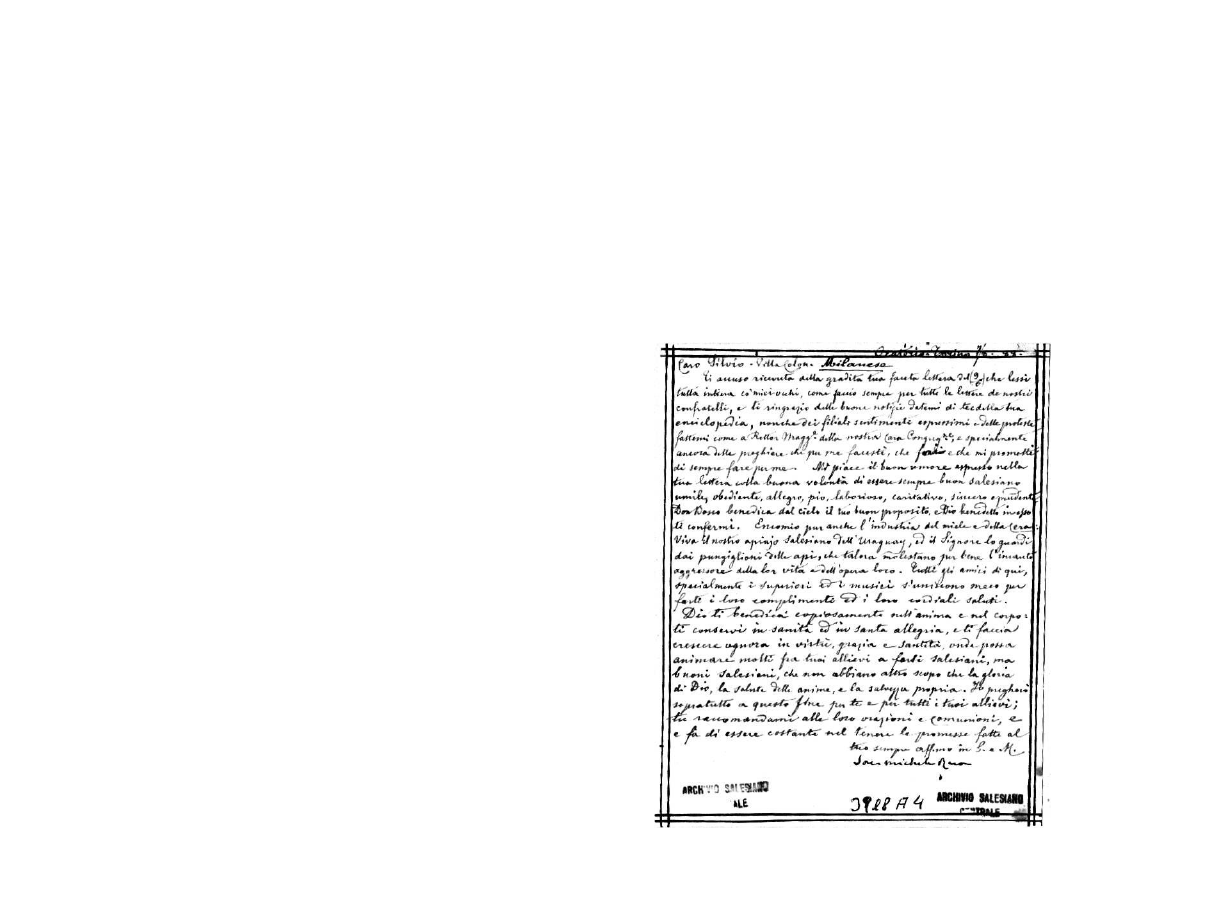 Oratorio - Torino 7/8 - 88.
Caro Silvio - Villa Colon. Milanese
Ti accuso ricevuta della gradita tua faceta lettera del che lessi
tutta intiera co' miei occhi, come faccio sempre per tutte le lettere de nostri
confratelli, e ti ringrazio delle buone notizie datemi di te e della tua
enciclopedia, nonchè dei filiali sentimenti espressimi e delle proteste
fattemi come a Rettor Magg.e della nostra cara Congreg.ne, e specialmente
ancora delle preghiere che per me facesti, che farai e che mi prometti
di sempre fare per me. Mi piace il buon umore espresso nella
tua lettera colla buona volontà di essere sempre buon salesiano
umile, obediente, allegro, pio, laborioso, caritativo, sincero e prudente
Don Bosco benedica dal cielo il tuo buon proposito, e Dio benedetto in esso
ti confermi. Encomio pur anche l'industria del miele e della cera:
Viva il nostro apiajo salesiano dell'Uraguay, ed il Signore lo guardi
dai pungiglioni delle api, che talora molestano per bene l'incauto
aggressore della lor vita e dell'opera loro. Tutti gli amici di qui,
specialmente i superiori ed i musici s'uniscono meco per
farti i loro complimenti ed i loro cordiali saluti.
Dio ti benedica copiosamente nell'anima e nel corpo:
ti conservi in sanità ed in santa allegria, e ti faccia
crescere ognora in virtù, grazia e santità, onde possa
animare molti fra tuoi allievi a farsi salesiani, ma
buoni salesiani, che non abbiano altro scopo che la gloria
di Dio, la salute delle anime, e la salvezza propria. Io pregherò
sopratutto a questo fine per te e per tutti i tuoi allievi;
tu raccomandami alle loro orazioni e comunioni, e
e fa di essere costante nel tenere le promesse fatte al
tuo sempre affmo in G. e M.
Sac. Michele Rua
ARCHIVIO SALESIANO
ALE
3988 A4
ARCHIVIO SALESIANO
CENTRALE